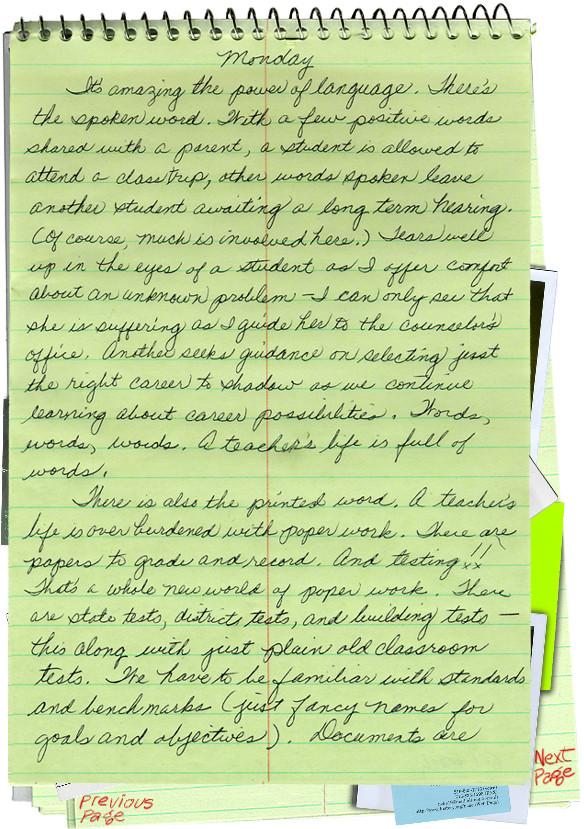 Monday
It's amazing the power of language. There's
the spoken word. With a few positive words
shared with a parent, a student is allowed to
attend a class trip, other words spoken leave
another student awaiting a long term hearing.
(Of course, much is involved here.) Tears well
up in the eyes of a student as I offer comfort
about an unknown problem – I can only see that
she is suffering as I guide her to the counselor's
office. Another seeks guidance on selecting just
the right career to shadow as we continue
learning about career possibilities. Words,
words, words. A teacher's life is full of
words.
There is also the printed word. A teacher's
life is over burdened with paper work. There are
papers to grade and record. And testing!!
That's a whole new world of paper work. There
are state tests, district tests, and building tests –
this along with just plain old classroom
tests. We have to be familiar with standards
and benchmarks (just fancy names for
goals and objectives). Documents are
Next
Page
Previous
Page